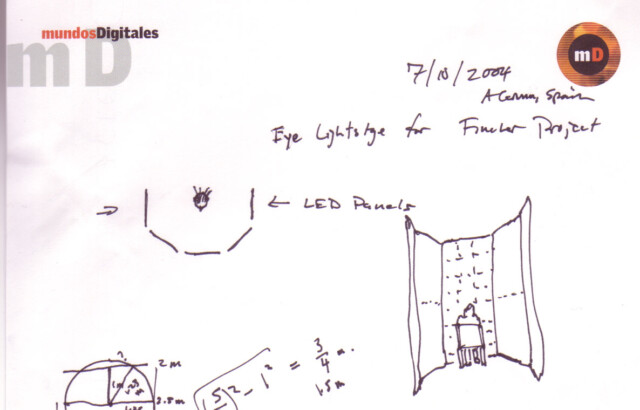 mundosDigitales
mD
mD
7/10/2004
A Coruna, Spain
Eye Lightstge for Fincher Project
← LED Panels
2 m
1m
3
4
m.
1.5m